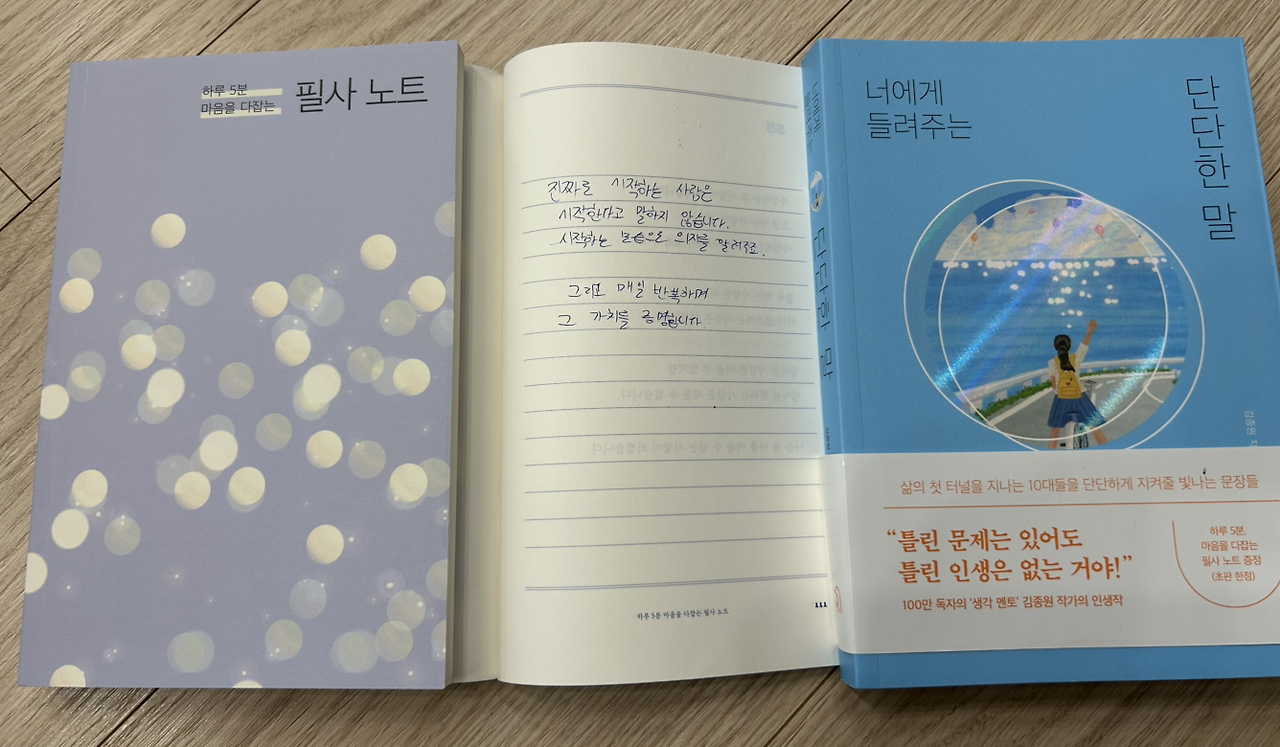 하루 5분
마음을 다잡는
필사 노트
진짜로 시작하는 사람은
시작한다고 말하지 않습니다.
시작하는 모습으로 의지를 알려주죠.
그리고 매일 반복하며
그 가치를 증명합니다.
하루 5분 마음을 다잡는 필사 노트
너에게
들려주는
단단한 말
김종원 지
삶의 첫 터널을 지나는 10대들을 단단하게 지켜줄 빛나는 문장들
“틀린 문제는 있어도
틀린 인생은 없는 거야!”
100만 독자의 ‘생각 멘토’ 김종원 작가의 인생작
하루 5분,
마음을 다잡는
필사 노트 증정
(초판 한정)